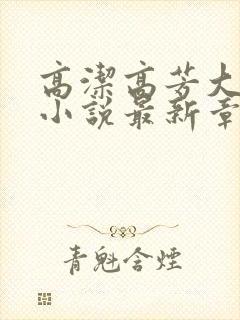 高潔高芳大
小說最新章
青魁含煙